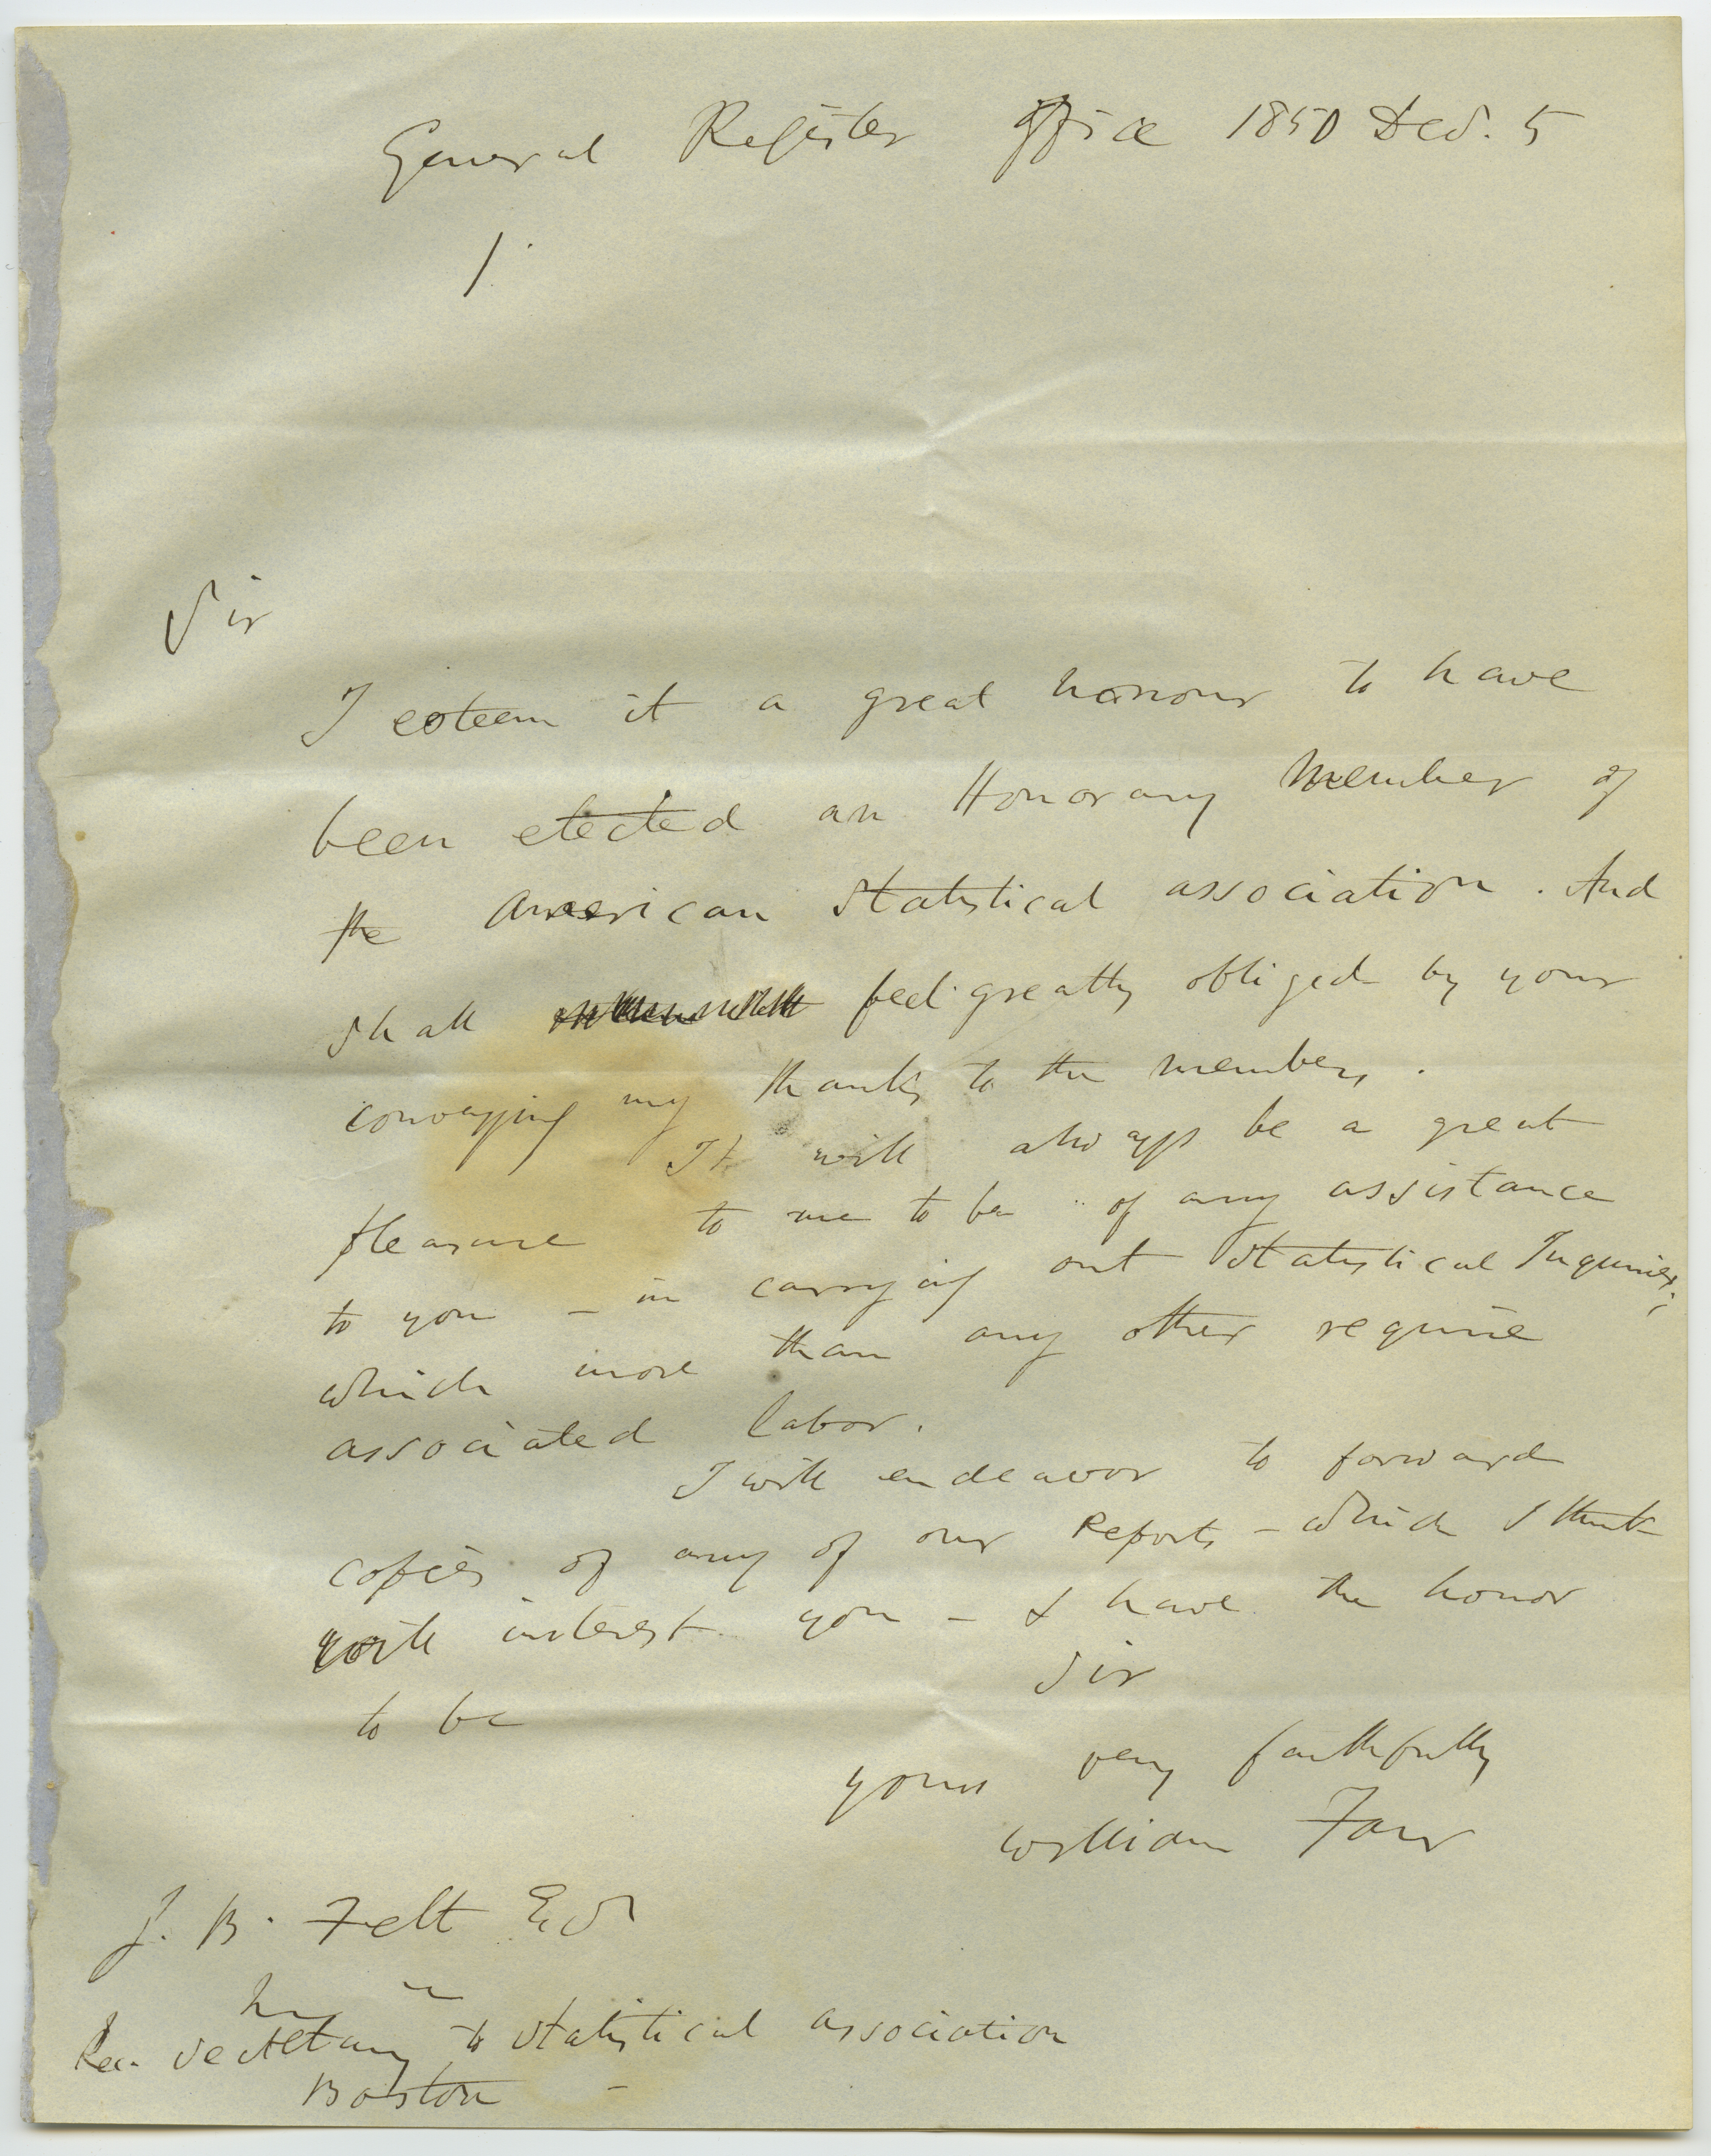 General Register Office 1850 Dec. 5
1.
Sir
I esteem it a great honour to have
been elected an Honorary Member of
the American Statistical association. And
shall feel greatly obliged by your
conveying my thanks to the members.
It will always be a great
pleasure to me to be of any assistance
to you – in carrying out Statistical Inquiries;
which more than any other require
associated labor.
I will endeavor to forward
copies of any of our Reports – which I think
will interest you – I have the honor
to be Sir
yours very faithfully
William Farr
J. B. Felt Esq
Rec. Secretary to Statistical association
Boston –